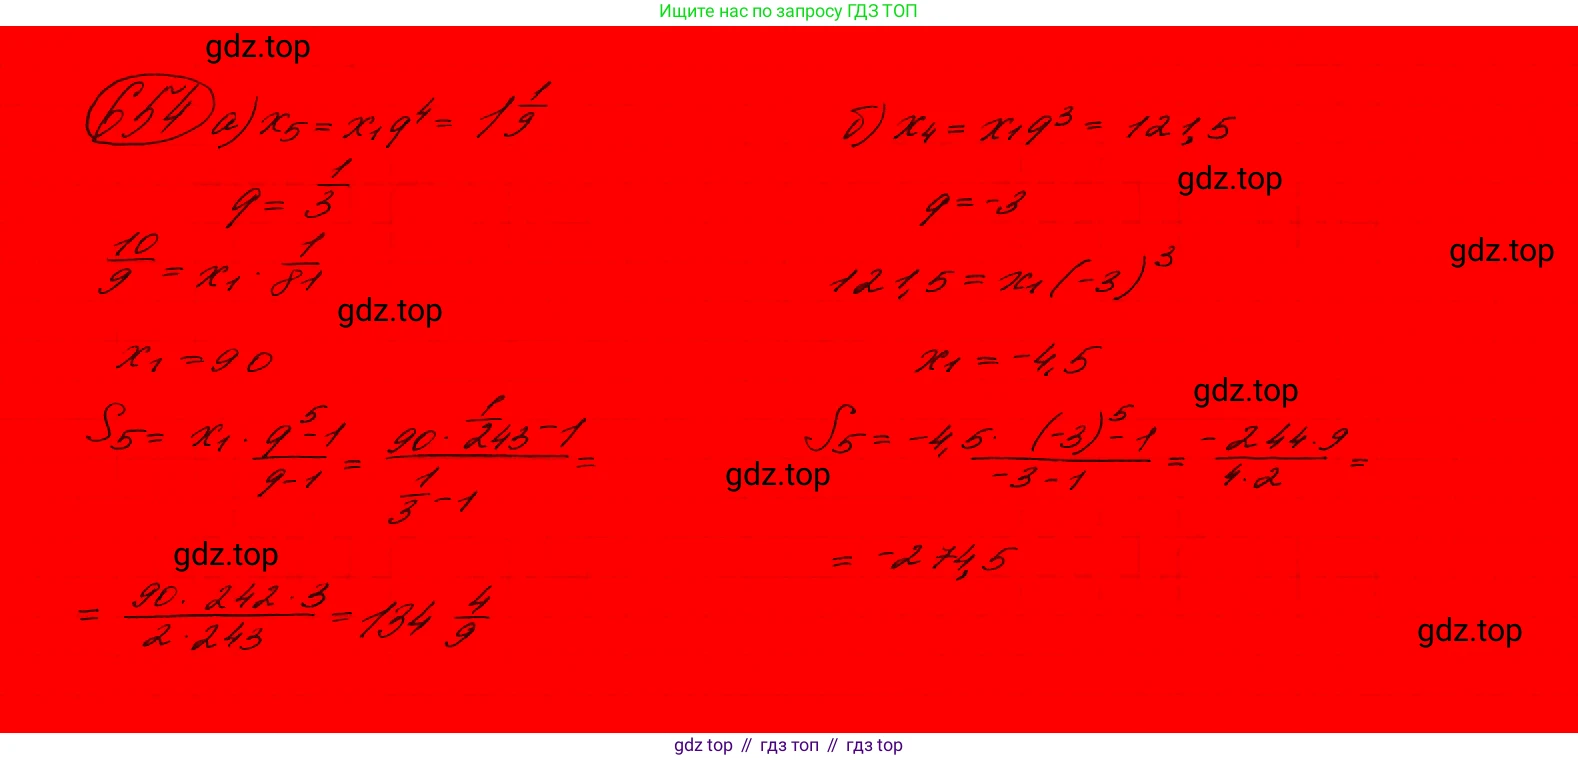 Ищите нас по запросу ГДЗ ТОП
gdz.top
654 а) x₅ = x₁q⁴ = 1 1/9
q = 1/3
10/9 = x₁ · 1/81
gdz.top
x₁ = 90
S₅ = x₁ · (q⁵-1)/(q-1) = (90 · 1/243 - 1)/(1/3 - 1) =
gdz.top
= (90 · 242 · 3)/(2 · 243) = 134 4/9
б) x₄ = x₁q³ = 121,5
gdz.top
q = -3
gdz.top
121,5 = x₁(-3)³
x₁ = -4,5
gdz.top
S₅ = -4,5 · ((-3)⁵-1)/(-3-1) = (-244·9)/(4·2) =
gdz.top
= -274,5
gdz.top
gdz top // гдз топ // гдз top